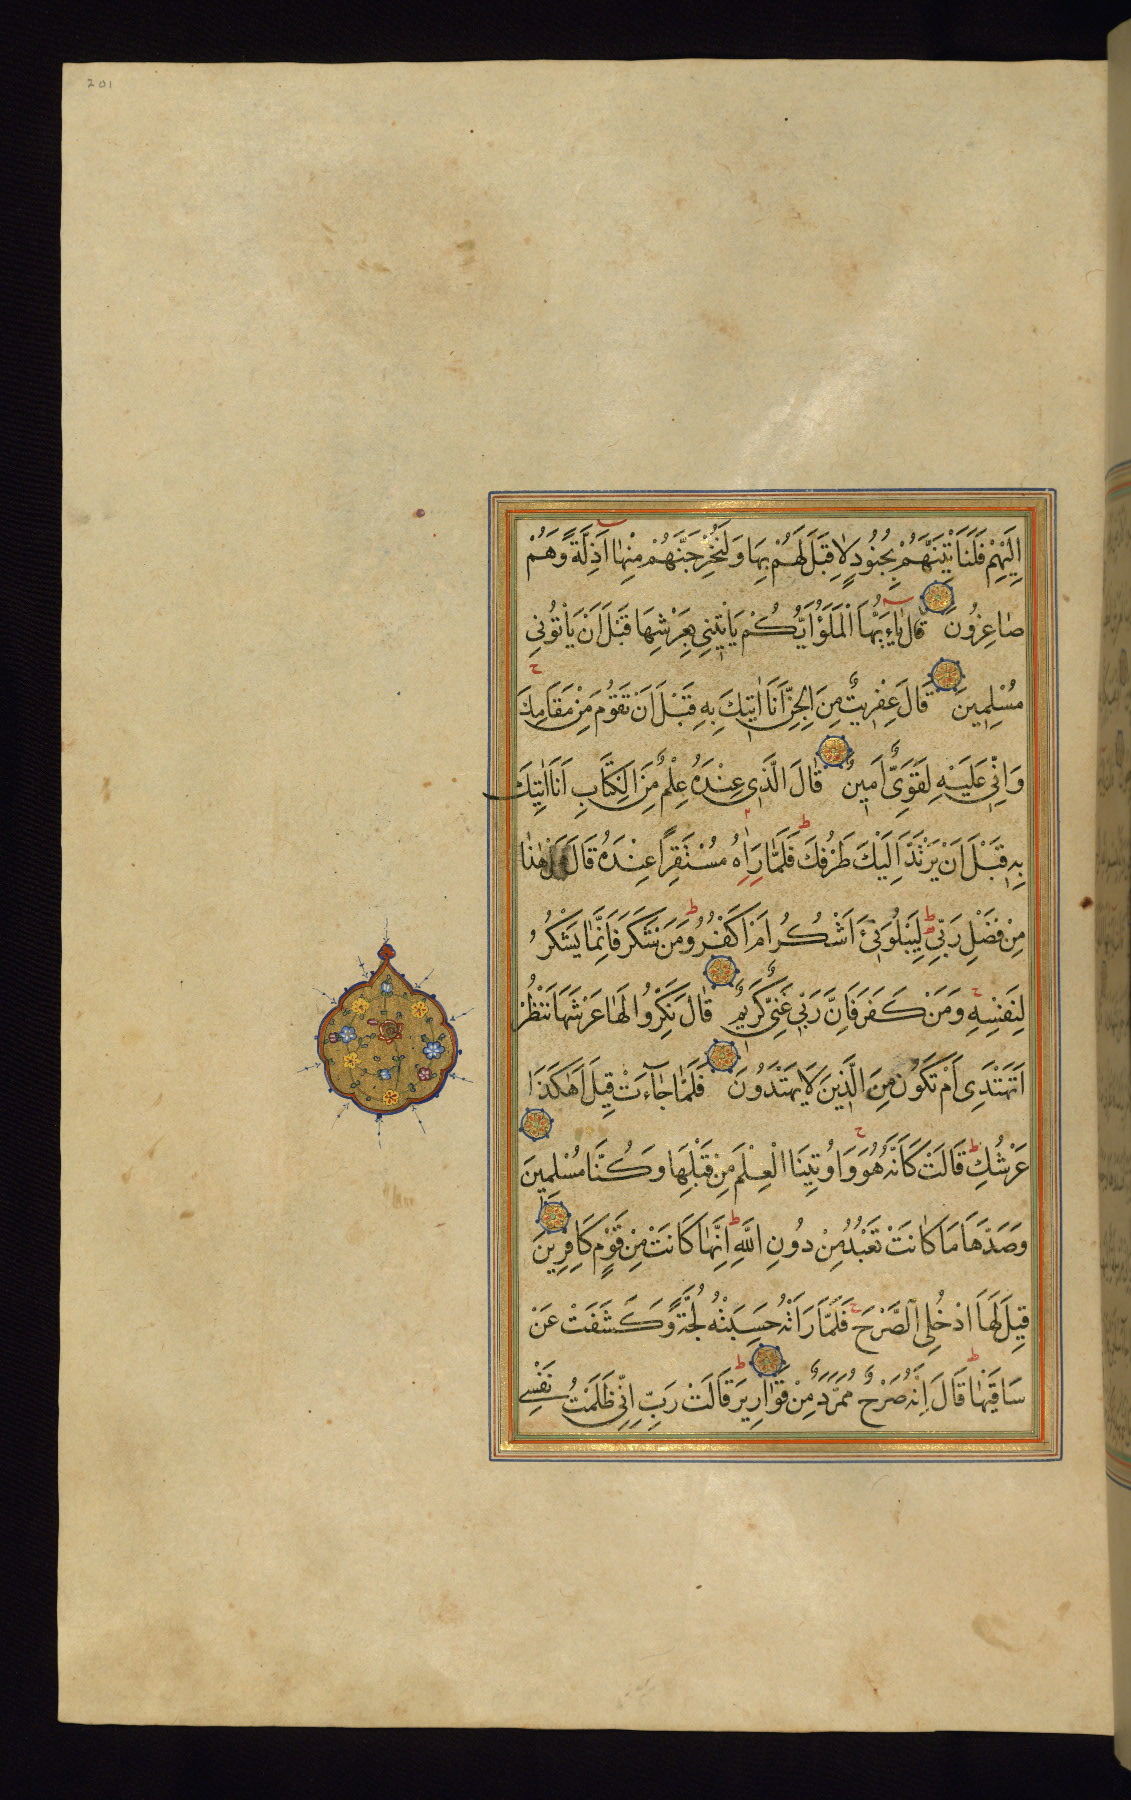 201
اِلَيْهِمْ فَلَنَأْتِيَنَّهُمْ بِجُنُودٍ لَا قِبَلَ لَهُمْ بِهَا وَلَنُخْرِجَنَّهُمْ مِنْهَا اَذِلَّةً وَهُمْ
صَاغِرُونَ قَالَ يَاءَيُّهَا الْمَلَؤُا اَيُّكُمْ يَأْتِينِي بِعَرْشِهَا قَبْلَ اَنْ يَأْتُونِي
مُسْلِمِينَ قَالَ عِفْرِيتٌ مِنَ الْجِنِّ اَنَا اٰتِيكَ بِهِ قَبْلَ اَنْ تَقُومَ مِنْ مَقَامِكَ
وَاِنِّي عَلَيْهِ لَقَوِيٌّ اَمِينٌ قَالَ الَّذِي عِنْدَهُ عِلْمٌ مِنَ الْكِتَابِ اَنَا اٰتِيكَ
بِهِ قَبْلَ اَنْ يَرْتَدَّ اِلَيْكَ طَرْفُكَ فَلَمَّا رَاٰهُ مُسْتَقِرًّا عِنْدَهُ قَالَ هٰذَا
مِنْ فَضْلِ رَبِّي لِيَبْلُوَنِي ءَ اَشْكُرُ اَمْ اَكْفُرُ وَمَنْ شَكَرَ فَاِنَّمَا يَشْكُرُ
لِنَفْسِهِ وَمَنْ كَفَرَ فَاِنَّ رَبِّي غَنِيٌّ كَرِيمٌ قَالَ نَكِّرُوا لَهَا عَرْشَهَا نَنْظُرْ
اَتَهْتَدِي اَمْ تَكُونُ مِنَ الَّذِينَ لَا يَهْتَدُونَ فَلَمَّا جَاءَتْ قِيلَ اَهٰكَذَا
عَرْشُكِ قَالَتْ كَاَنَّهُ هُوَ وَاُوتِينَا الْعِلْمَ مِنْ قَبْلِهَا وَكُنَّا مُسْلِمِينَ
وَصَدَّهَا مَا كَانَتْ تَعْبُدُ مِنْ دُونِ اللّٰهِ اِنَّهَا كَانَتْ مِنْ قَوْمٍ كَافِرِينَ
قِيلَ لَهَا ادْخُلِي الصَّرْحَ فَلَمَّا رَاَتْهُ حَسِبَتْهُ لُجَّةً وَكَشَفَتْ عَنْ
سَاقَيْهَا قَالَ اِنَّهُ صَرْحٌ مُمَرَّدٌ مِنْ قَوَارِيرَ قَالَتْ رَبِّ اِنِّي ظَلَمْتُ نَفْسِي